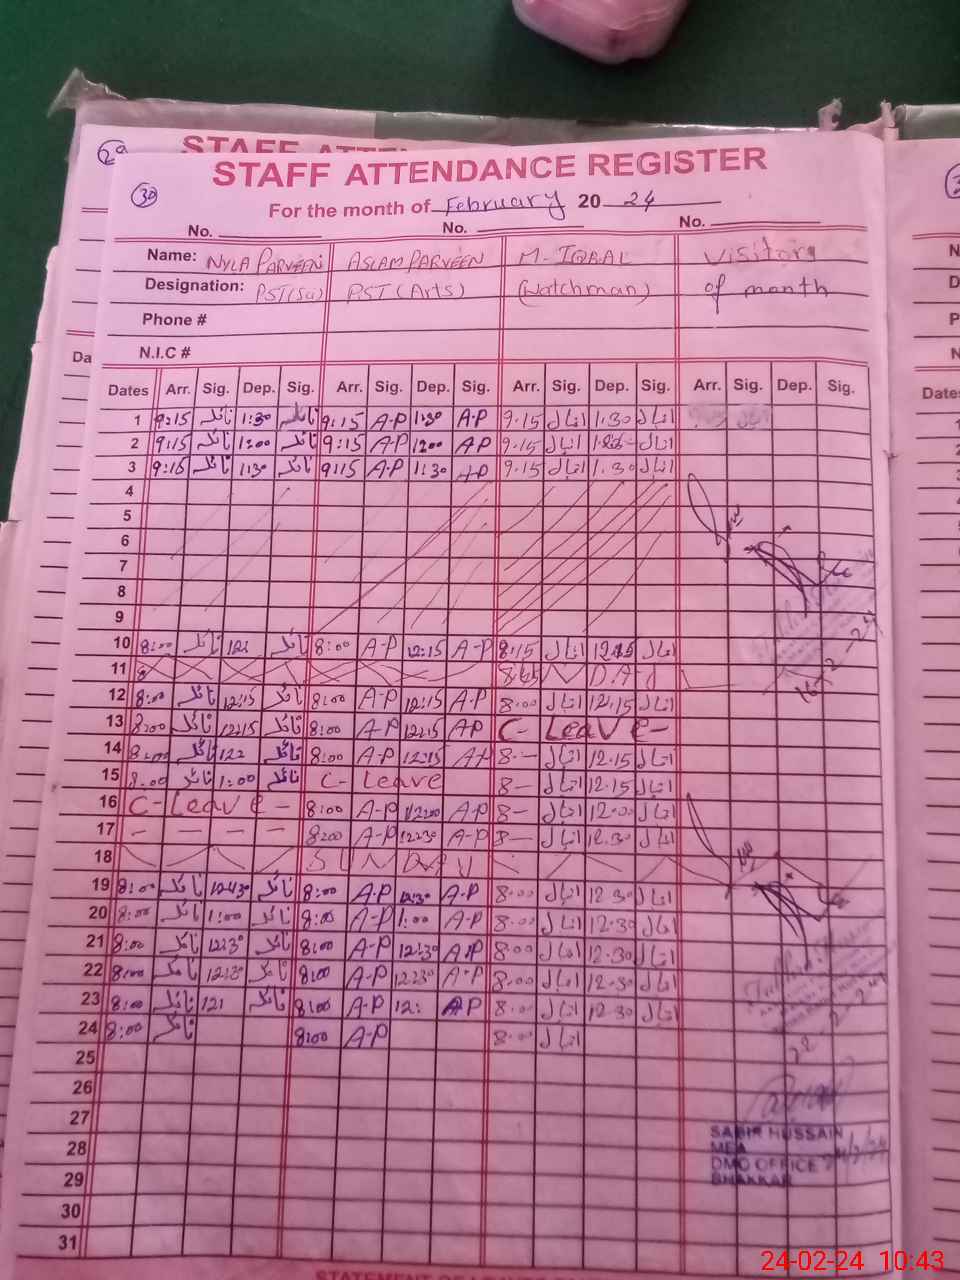 2a
STAFF ATTEN
STAFF ATTENDANCE REGISTER
30
For the month of February 20 24
No. No. No.
Name: NYLA PARVEEN ASLAM PARVEEN M. IQBAL Visitors
Designation: PST(Sci) PST (Arts) (Watchman) of month
Phone #
N.I.C #
Dates Arr. Sig. Dep. Sig. Arr. Sig. Dep. Sig. Arr. Sig. Dep. Sig. Arr. Sig. Dep. Sig.
1 9:15 نائلہ 1:30 نائلہ 9:15 A-P 1:30 A-P 9.15 اقبال 1.30 اقبال
2 9:15 نائلہ 1:00 نائلہ 9:15 A-P 1200 AP 9.15 اقبال اقبال
3 9:15 نائلہ 1:30 نائلہ 9:15 A-P 1:30 A-P 9.15 اقبال 1.30 اقبال
4
5
6
7
8
9
10 8:00 نائلہ 12: نائلہ 8:00 A-P 12:15 A-P 8:15 اقبال 12.15 اقبال
11
12 8:00 نائلہ 12:15 نائلہ 8:00 A-P 12:15 A.P 8.00 اقبال 12.15 اقبال
13 8:00 نائلہ 12:15 نائلہ 8:00 A-P 12:15 AP C- Leave -
14 8:00 نائلہ نائلہ 8:00 A-P 12:15 A-P 8- اقبال 12.15 اقبال
15 8:00 نائلہ 1:00 نائلہ C- Leave 8- اقبال 12.15 اقبال
16 C- Leave - 8:00 A-P 12:00 A-P 8- اقبال 12.00 اقبال
17 - - - - 8:00 A-P 12:30 A-P 8- اقبال 12.30 اقبال
18 SUNDAY
19 8:00 نائلہ نائلہ 8:00 A.P 12:30 A.P 8.00 اقبال 12.30 اقبال
20 8:00 نائلہ 1:00 نائلہ 8:00 A-P 1:00 A-P 8.00 اقبال 12.30 اقبال
21 8:00 نائلہ 12:30 نائلہ 8:00 A-P 12:30 A.P 8.00 اقبال 12.30 اقبال
22 8:00 نائلہ 12:30 نائلہ 8:00 A-P 12:30 A-P 8.00 اقبال 12.30 اقبال
23 8:00 نائلہ نائلہ 8:00 A-P 12: AP 8.00 اقبال 12.30 اقبال
24 8:00 نائلہ 8:00 A-P 8.00 اقبال
25
26
27
28
29
30
31
16-2-24
SABIR HUSSAIN
MEA
DMO OFFICE
BHAKKAR
24/2/24
24-02-24 10:43